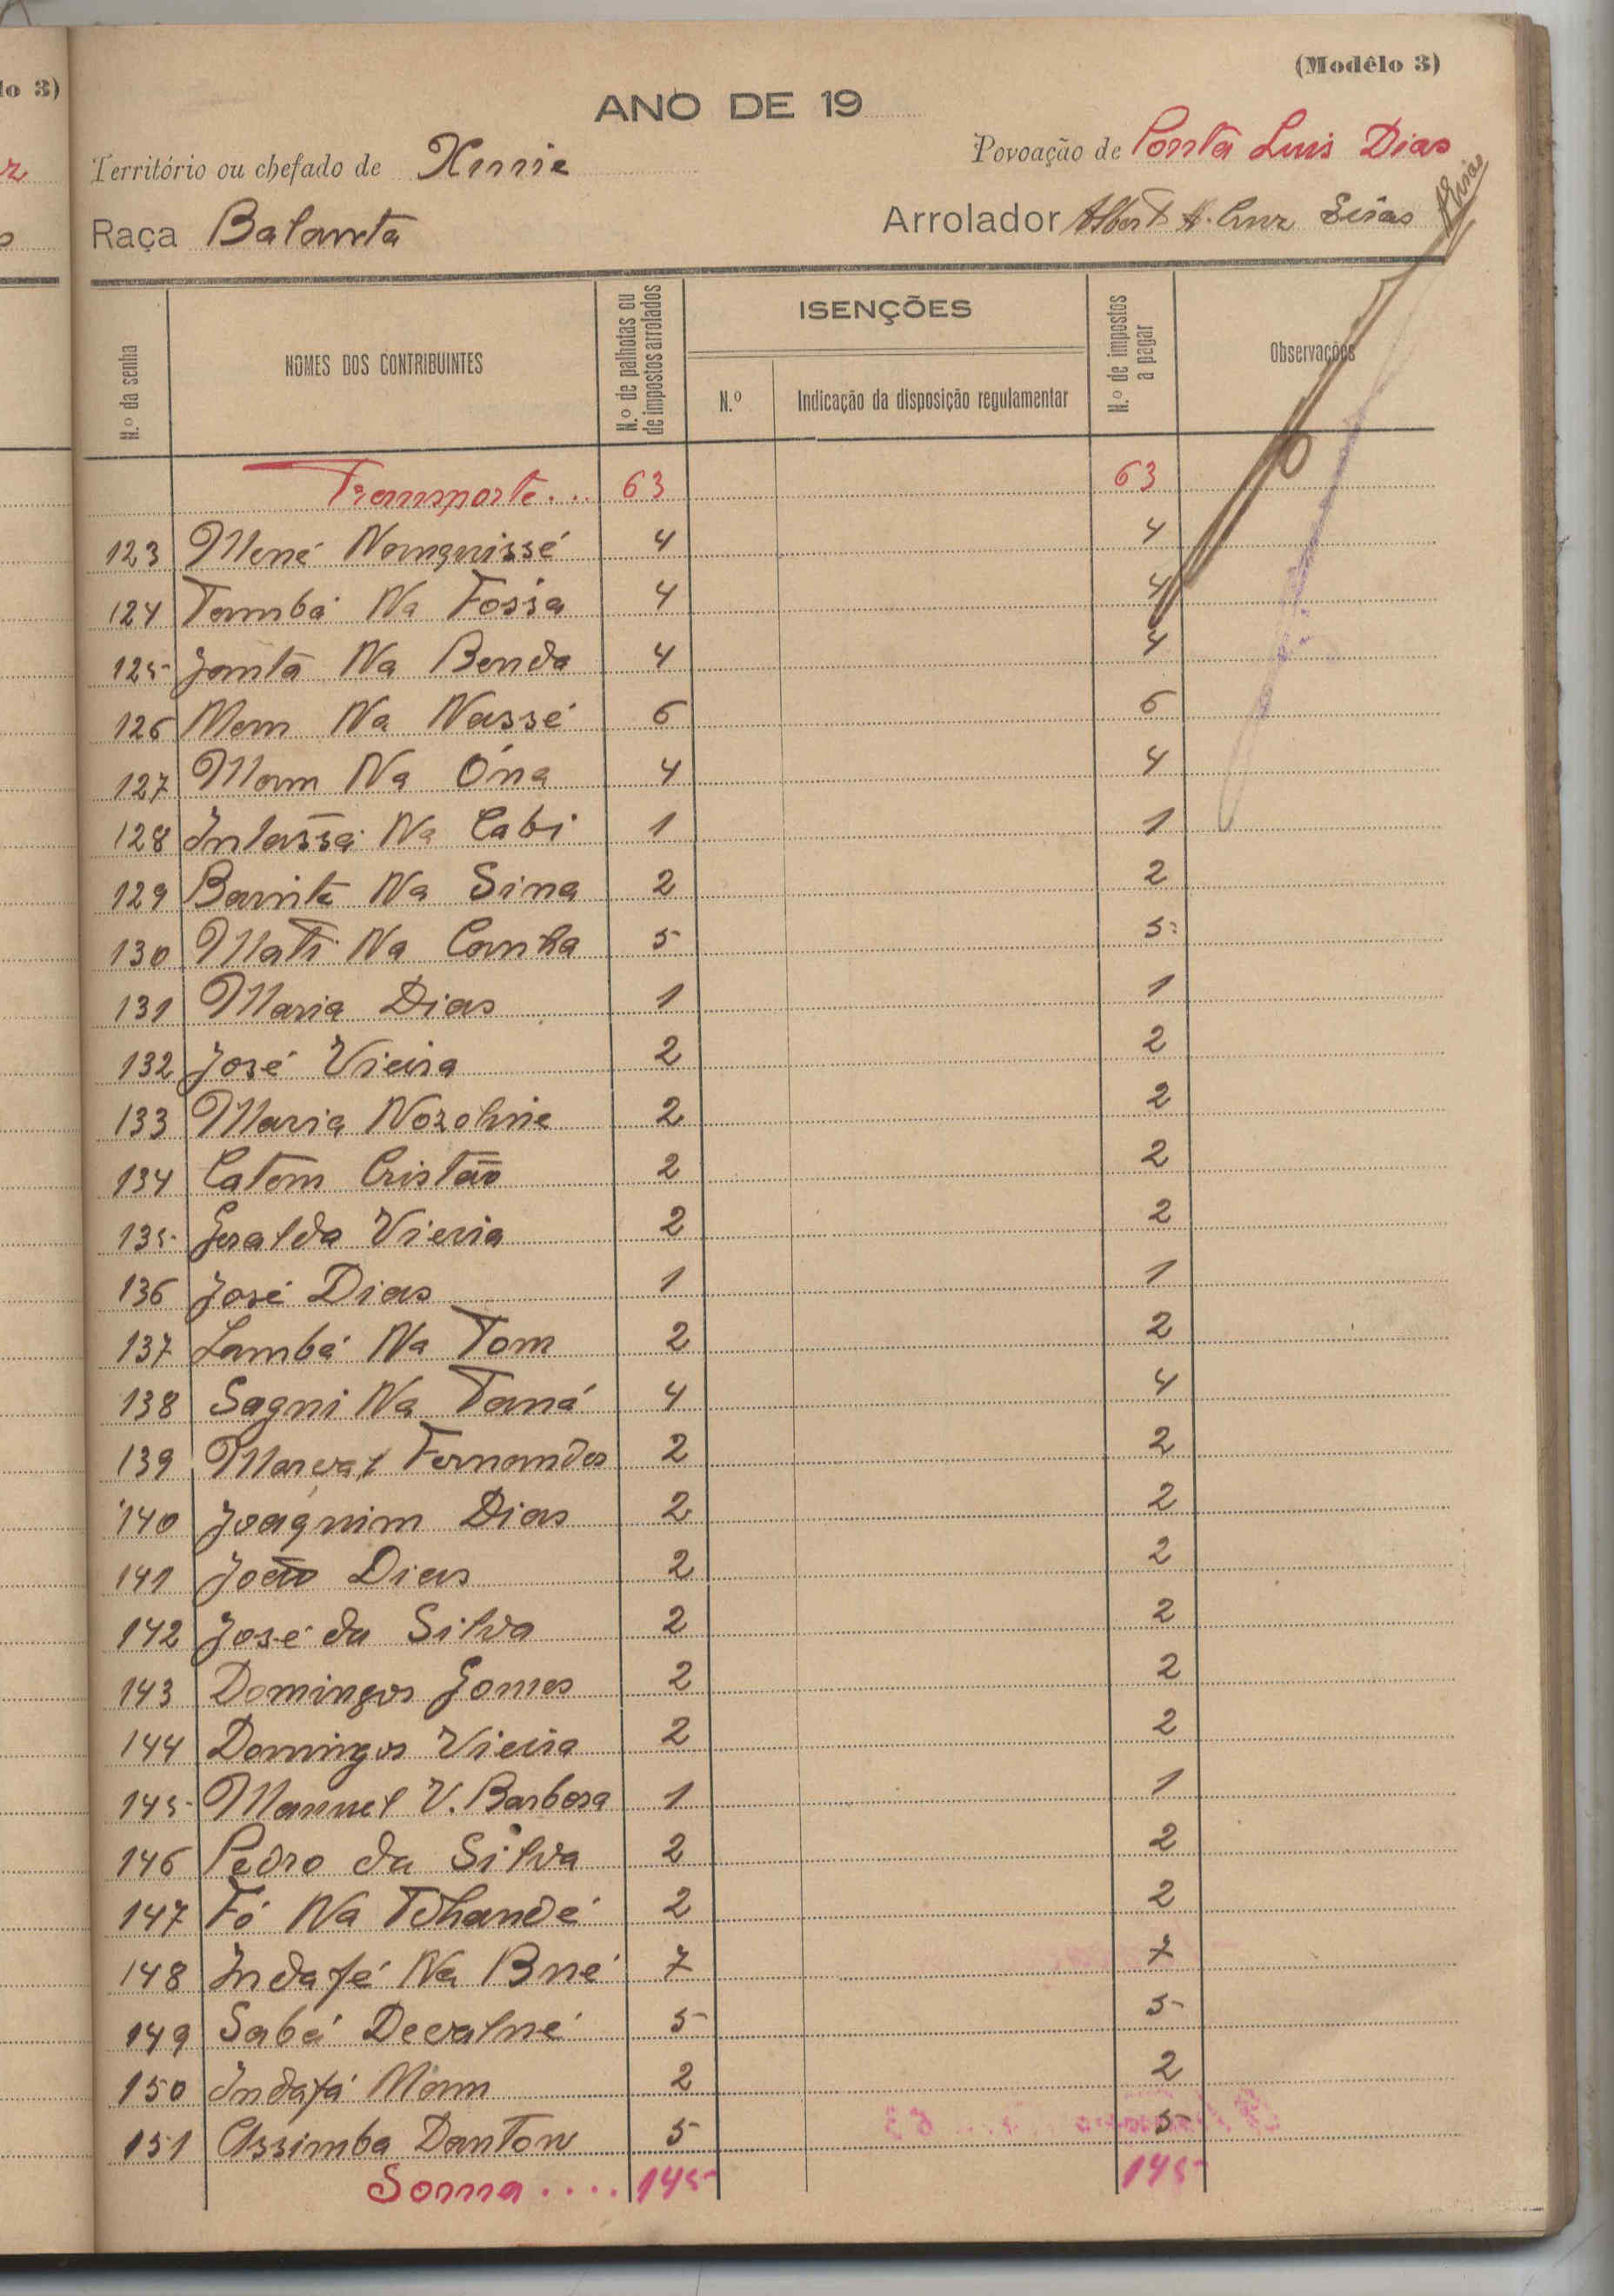 lo 3)
(Modêlo 3)
ANO DE 19
Território ou chefado de Xinie
Povoação de Ponta Luis Dias
Raça Balanta
Arrolador Albert A. Cruz
N.º da senha
NOMES DOS CONTRIBUINTES
N.º de palhotas ou de impostos arrolados
ISENÇÕES
N.º
Indicação da disposição regulamentar
N.º de impostos a pagar
Observações
Transporte... 63 63
123 Mené Nanquissé 4 4
124 Tambá Na Fossa 4 4
125 Jantá Na Benda 4 4
126 Mam Na Nassé 6 6
127 Mam Na Óna 4 4
128 Intassá Na Cabi 1 1
129 Bainte Na Sina 2 2
130 Mati Na Canha 5 5
131 Maria Dias 1 1
132 José Vieira 2 2
133 Maria Nozoline 2 2
134 Catom Cristão 2 2
135 Geralda Vieria 2 2
136 José Dias 1 1
137 Lambá Na Tom 2 2
138 Sagni Na Taná 4 4
139 Marcal Fernandes 2 2
140 Joaquim Dias 2 2
141 João Dias 2 2
142 José da Silva 2 2
143 Domingos Gomes 2 2
144 Domingos Vieira 2 2
145 Manuel V. Barbosa 1 1
146 Pedro da Silva 2 2
147 Fó Na Tchandé 2 2
148 Indafé Na Bné 7 7
149 Sabá Decalné 5 5
150 Indafá Mam 2 2
151 Assimba Danton 5 5
Soma.... 145 145